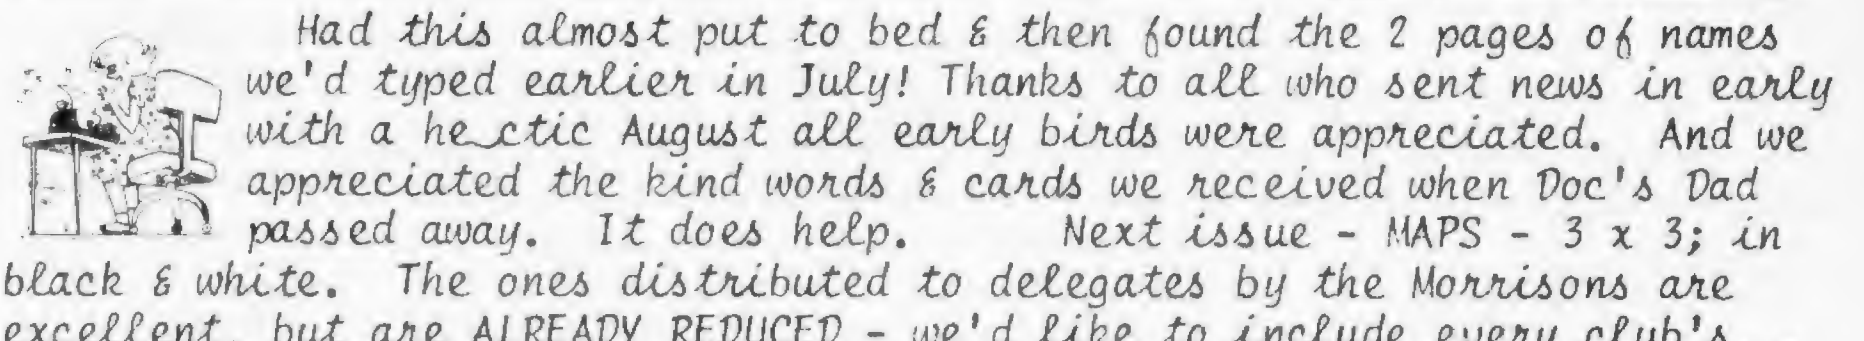 Had this almost put to bed & then found the 2 pages of names
we'd typed earlier in July! Thanks to all who sent news in early
with a hectic August all early birds were appreciated. And we
appreciated the kind words & cards we received when Doc's Dad
passed away. It does help. Next issue - MAPS - 3 x 3; in
black & white. The ones distributed to delegates by the Morrisons are
excellent, but are ALREADY REDUCED - we'd like to include every club's